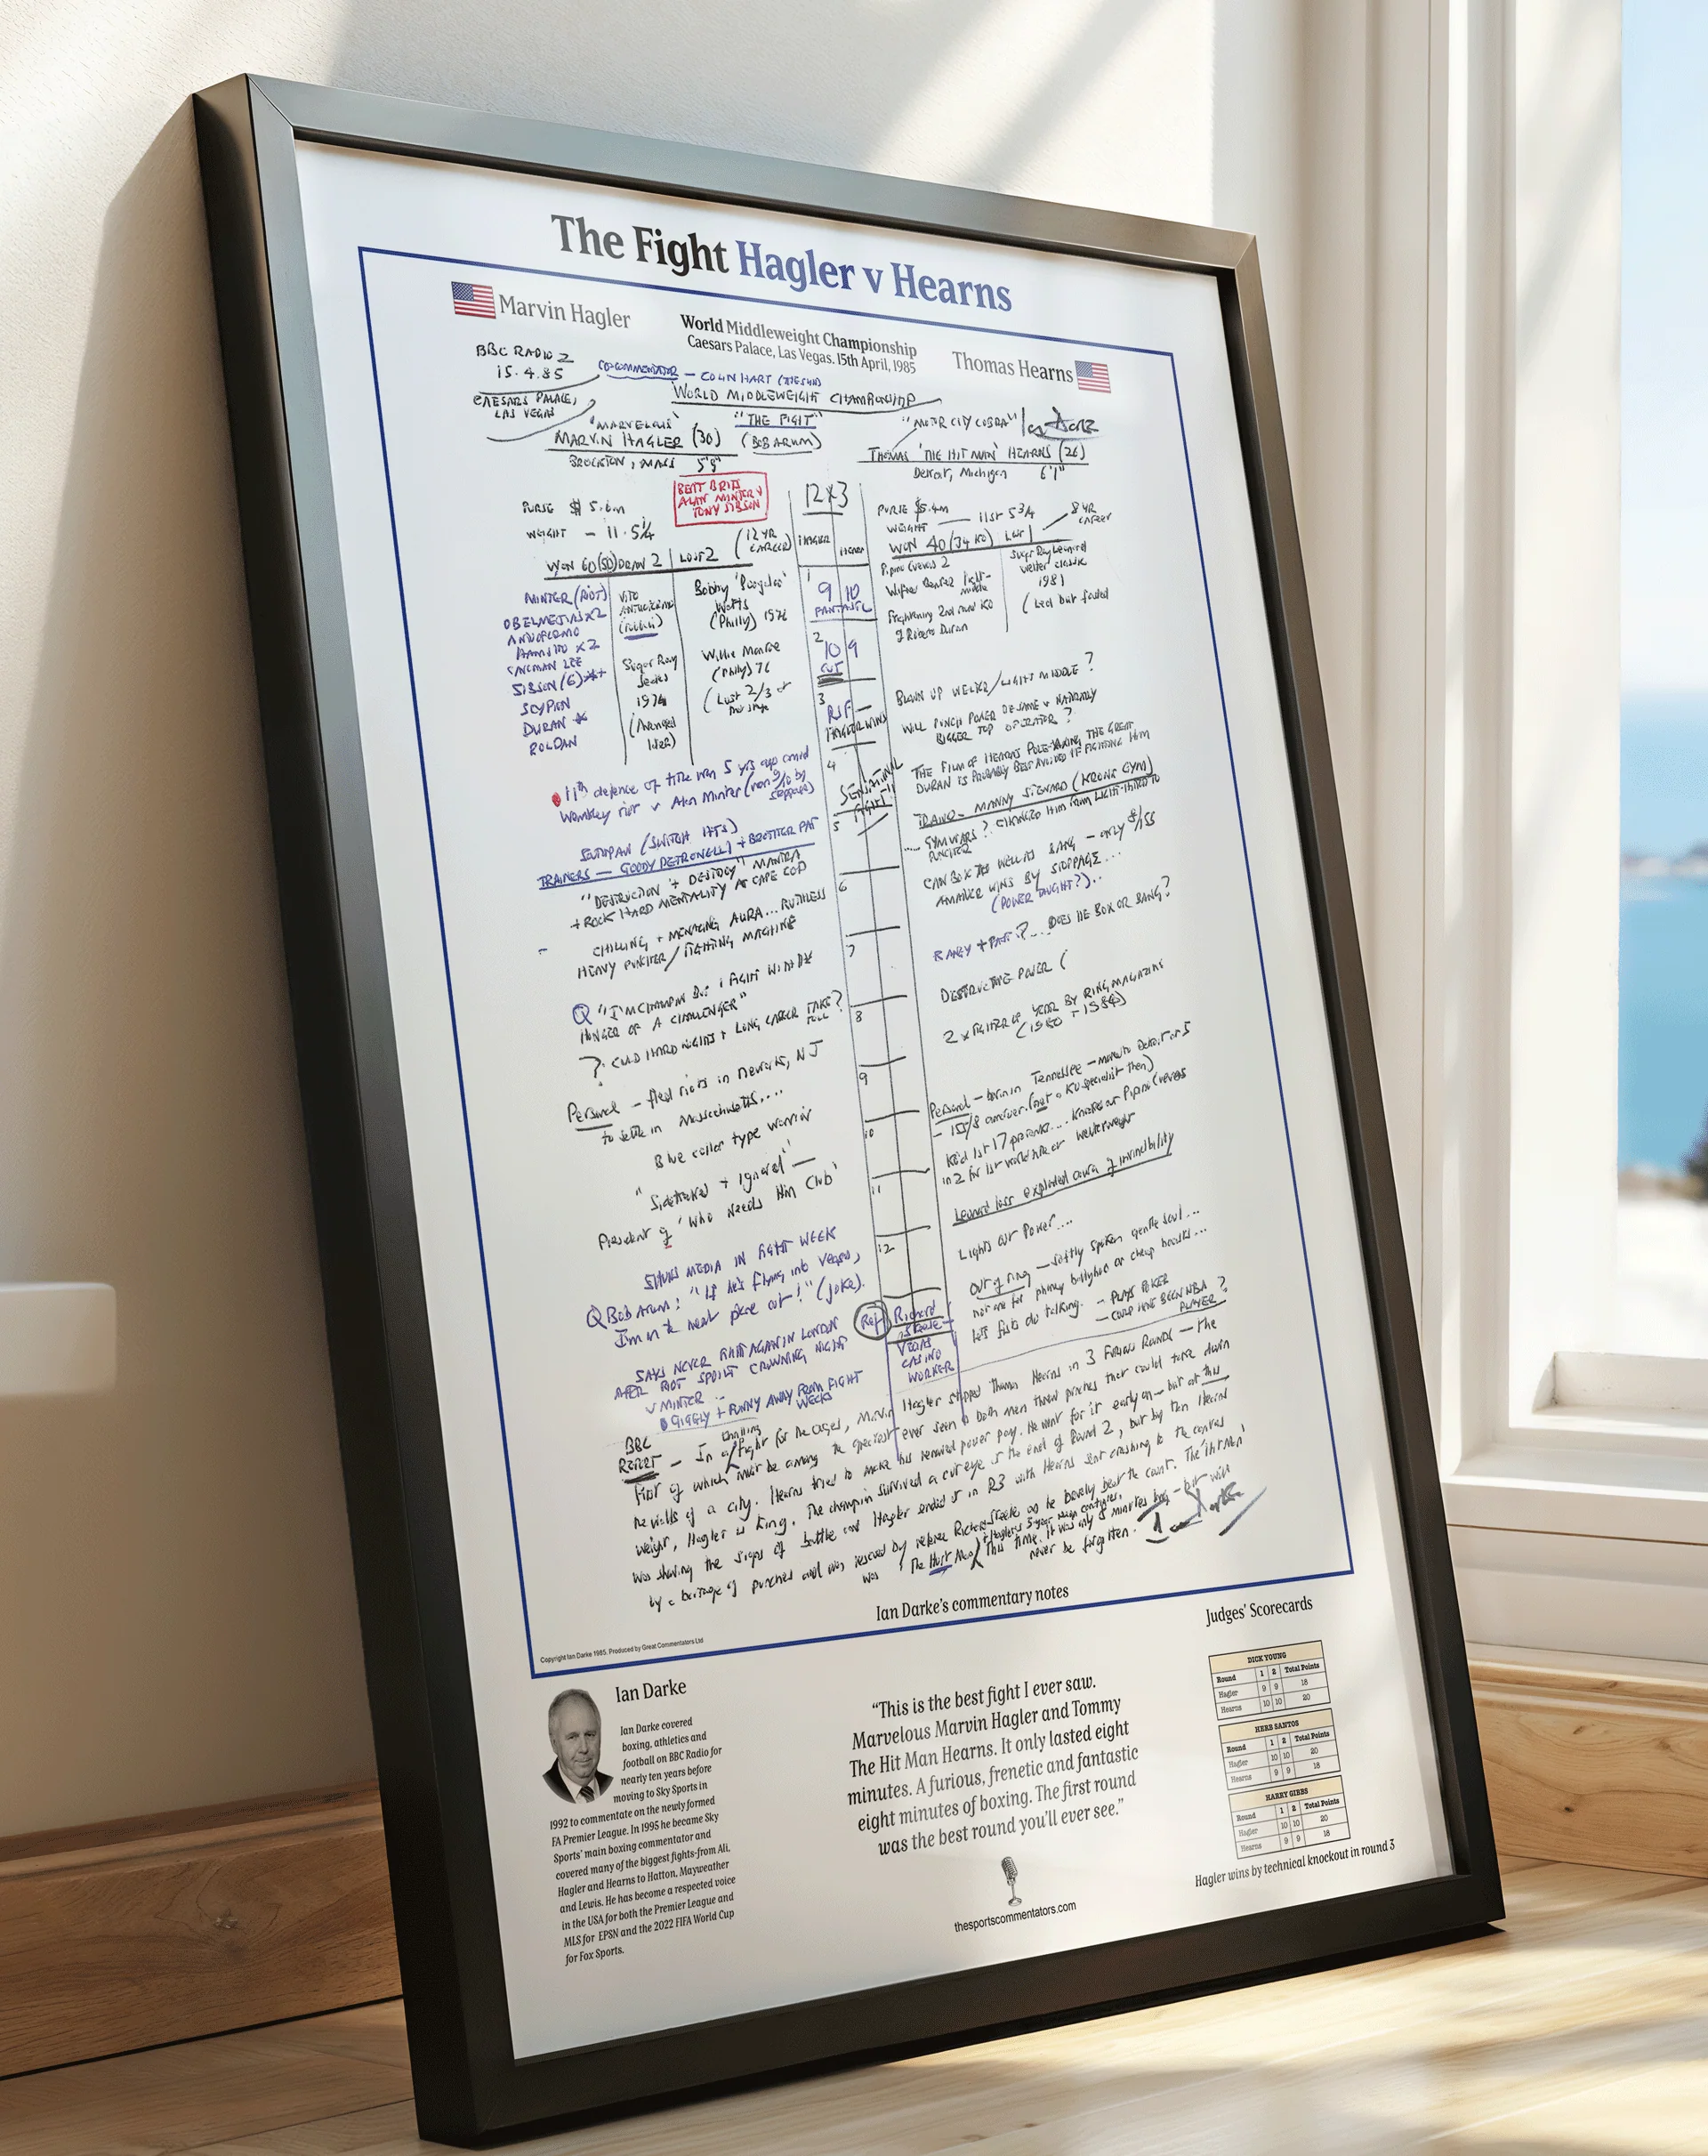 The Fight Hagler v Hearns
Marvin Hagler
World Middleweight Championship
Caesars Palace, Las Vegas. 15th April, 1985
Thomas Hearns
BBC RADIO 2
15.4.85
CAESARS PALACE,
LAS VEGAS
CO-COMMENTATOR — COLIN HART (THE SUN)
WORLD MIDDLEWEIGHT CHAMPIONSHIP
"THE FIGHT"
(BOB ARUM)
'MARVELOUS'
MARVIN HAGLER (30)
BROCKTON, MASS 5'9"
"MOTOR CITY COBRA"
THOMAS 'THE HIT MAN' HEARNS (26)
Detroit, Michigan 6'1"
PURSE $5.6m
WEIGHT — 11.5¼
BEAT BRITS
ALAN MINTER &
TONY SIBSON
(12 YR
CAREER)
WON 60 (50) DRAW 2 LOST 2
MINTER (RIOT)
OBELMEJIAS x2
ANTUOFERMO
HAMSHO x2
CAVEMAN LEE
SIBSON (6)
SCYPION
DURAN
ROLDAN
VITO
ANTUOFERMO
Sugar Ray
Seales
1974
(Avenged
later)
Bobby 'Boogaloo'
Watts
(Philly) 1976
Willie Monroe
(Philly) 76
(Lost 2/3 at
this stage
12x3
HAGLER HEARNS
1
9 10
FANTASTIC
2
10 9
CUT
3
RSF
HAGLER WINS
4
SENSATIONAL
FIGHT!
5
6
7
8
9
10
11
12
PURSE $5.4m
WEIGHT — 11st 5¾
8 YR
CAREER
WON 40 (34 KO) Lost 1
Pipino Cuevas 2
Wilfred Benitez light-
middle
Frightening 2nd round KO
of Roberto Duran
Sugar Ray Leonard
welter classic
1981
(Led but faded
BLOWN UP WELTER/LIGHT MIDDLE?
WILL PUNCH POWER BE SAME v NATURALLY
BIGGER TOP OPERATOR?
THE FILM OF HEARNS POLE-AXING THE GREAT
DURAN IS PROBABLY BEST AVOIDED IF FIGHTING HIM
TRAINER — MANNY STEWARD (KRONK GYM)
GYM WARS?. CHANGED HIM FROM LIGHT-HITTER TO
PUNCHER
CAN BOX AS WELL AS BANG — ONLY 8/155
AMATEUR WINS BY STOPPAGE...
(POWER TAUGHT?)..
RANGY + FAST?... DOES HE BOX OR BANG?
DESTRUCTIVE POWER (
2 x FIGHTER OF YEAR BY RING MAGAZINE
(1980 + 1984)
Personal — born in Tennessee — moved to Detroit at 5
— 155/8 amateur. (not a KO specialist then)
KO'd 1st 17 pro fights.... Knocked out Pipino Cuevas
in 2 for 1st world title at welterweight
Leonard loss exploded aura of invincibility
Lights out Power....
Out of ring — softly spoken gentle soul...
not one for phoney ballyhoo or cheap insults...
lets fists do talking. — PLAYS POKER
— COULD HAVE BEEN NBA PLAYER?
11th defence of title won 5 yrs ago amid
Wembley riot v Alan Minter (won 9/10 by
stoppage)
SOUTHPAW (SWITCH HITS)
TRAINERS — GOODY PETRONELLI + BROTHER PAT
"DESTRUCTION + DESTROY" MANTRA
+ ROCK HARD MENTALITY AT CAPE COD
CHILLING + MENACING AURA... RUTHLESS
HEAVY PUNCHER/FIGHTING MACHINE
Q "I'M CHAMPION BUT I FIGHT WITH THE
HUNGER OF A CHALLENGER"
?. COULD HARD NIGHTS + LONG CAREER TAKE
TOLL?
Personal — fled riots in Newark, NJ
to settle in Massachusetts....
Blue collar type warrior
"Sidetracked + Ignored" —
President of 'Who Needs Him Club'
SHUNS MEDIA IN FIGHT WEEK
Q Bob Arum: "If he's flying into Vegas,
I'm on the next plane out!" (joke).
SAYS NEVER FIGHT AGAIN IN LONDON
AFTER RIOT SPOILT CROWNING NIGHT
v MINTER
GIGGLY + FUNNY AWAY FROM FIGHT
WEEKS
Ref
Richard
Steele —
VEGAS
CASINO
WORKER
BBC
REPORT — In a thrilling fight for the ages, Marvin Hagler stopped Thomas Hearns in 3 FURIOUS ROUNDS — the
first of which must be among the greatest ever seen as both men threw punches that could take down
the walls of a city. Hearns tried to make his renowned power pay. He went for it early on — but at this
weight, Hagler is King. The champion survived a cut eye at the end of Round 2, but by then Hearns
was showing the signs of battle and Hagler ended it in R3 with Hearns sent crashing to the canvas
by a barrage of punches and was rescued by referee Richard Steele as he barely beat the count. The 'Hit Man'
was 'The Hurt Man' this time. It was only 8 minutes long — but will
never be forgotten.
Ian Darke
Ian Darke's commentary notes
Copyright Ian Darke 1985. Produced by Great Commentators Ltd
Ian Darke
Ian Darke covered
boxing, athletics and
football on BBC Radio for
nearly ten years before
moving to Sky Sports in
1992 to commentate on the newly formed
FA Premier League. In 1995 he became Sky
Sports' main boxing commentator and
covered many of the biggest fights-from Ali,
Hagler and Hearns to Hatton, Mayweather
and Lewis. He has become a respected voice
in the USA for both the Premier League and
MLS for EPSN and the 2022 FIFA World Cup
for Fox Sports.
"This is the best fight I ever saw.
Marvelous Marvin Hagler and Tommy
The Hit Man Hearns. It only lasted eight
minutes. A furious, frenetic and fantastic
eight minutes of boxing. The first round
was the best round you'll ever see."
thesportscommentators.com
Judges' Scorecards
DICK YOUNG
Round 1 2 Total Points
Hagler 9 9 18
Hearns 10 10 20
HERB SANTOS
Round 1 2 Total Points
Hagler 10 10 20
Hearns 9 9 18
HARRY GIBBS
Round 1 2 Total Points
Hagler 10 10 20
Hearns 9 9 18
Hagler wins by technical knockout in round 3